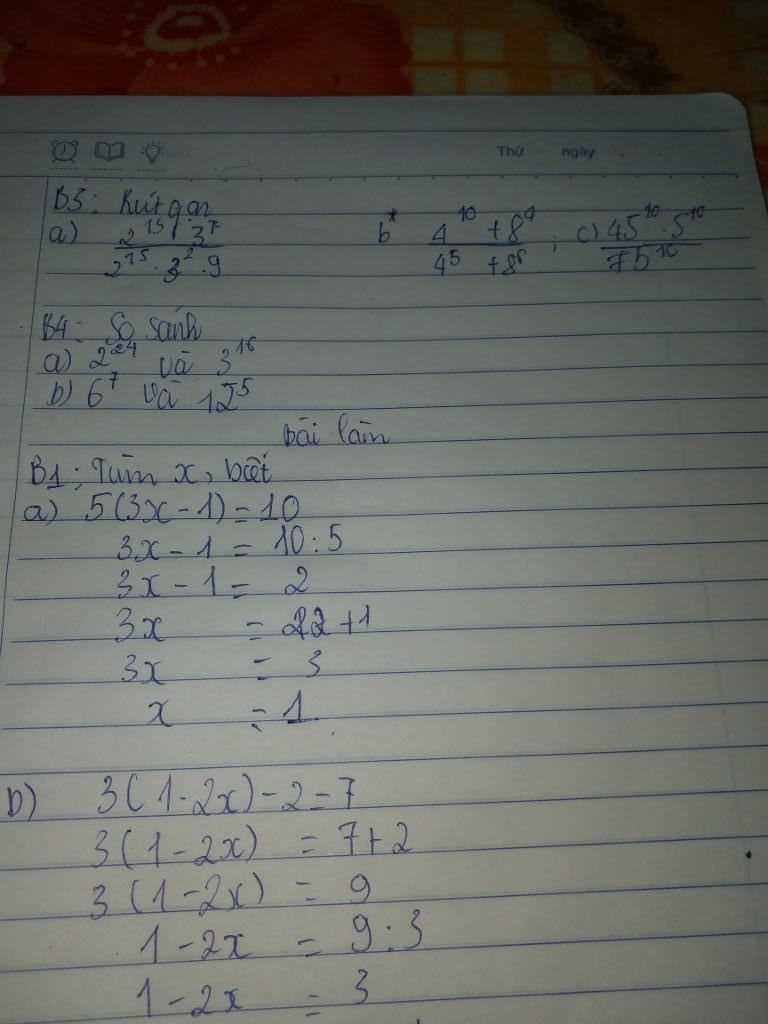 Thứ ngày
B3: Rút gọn
a) 2^15 . 3^7 / 2^15 . 3^2 . 9 b* 4^10 + 8^9 / 4^5 + 8^6 ; c) 45^10 . 5^10 / 75^10
B4: So sánh
a) 2^24 và 3^16
b) 6^7 và 12^5
bài làm
B1; Tìm x, biết
a) 5(3x - 1) = 10
3x - 1 = 10 : 5
3x - 1 = 2
3x = 22 + 1
3x = 3
x = 1
b) 3(1 - 2x) - 2 = 7
3(1 - 2x) = 7 + 2
3(1 - 2x) = 9
1 - 2x = 9 : 3
1 - 2x = 3